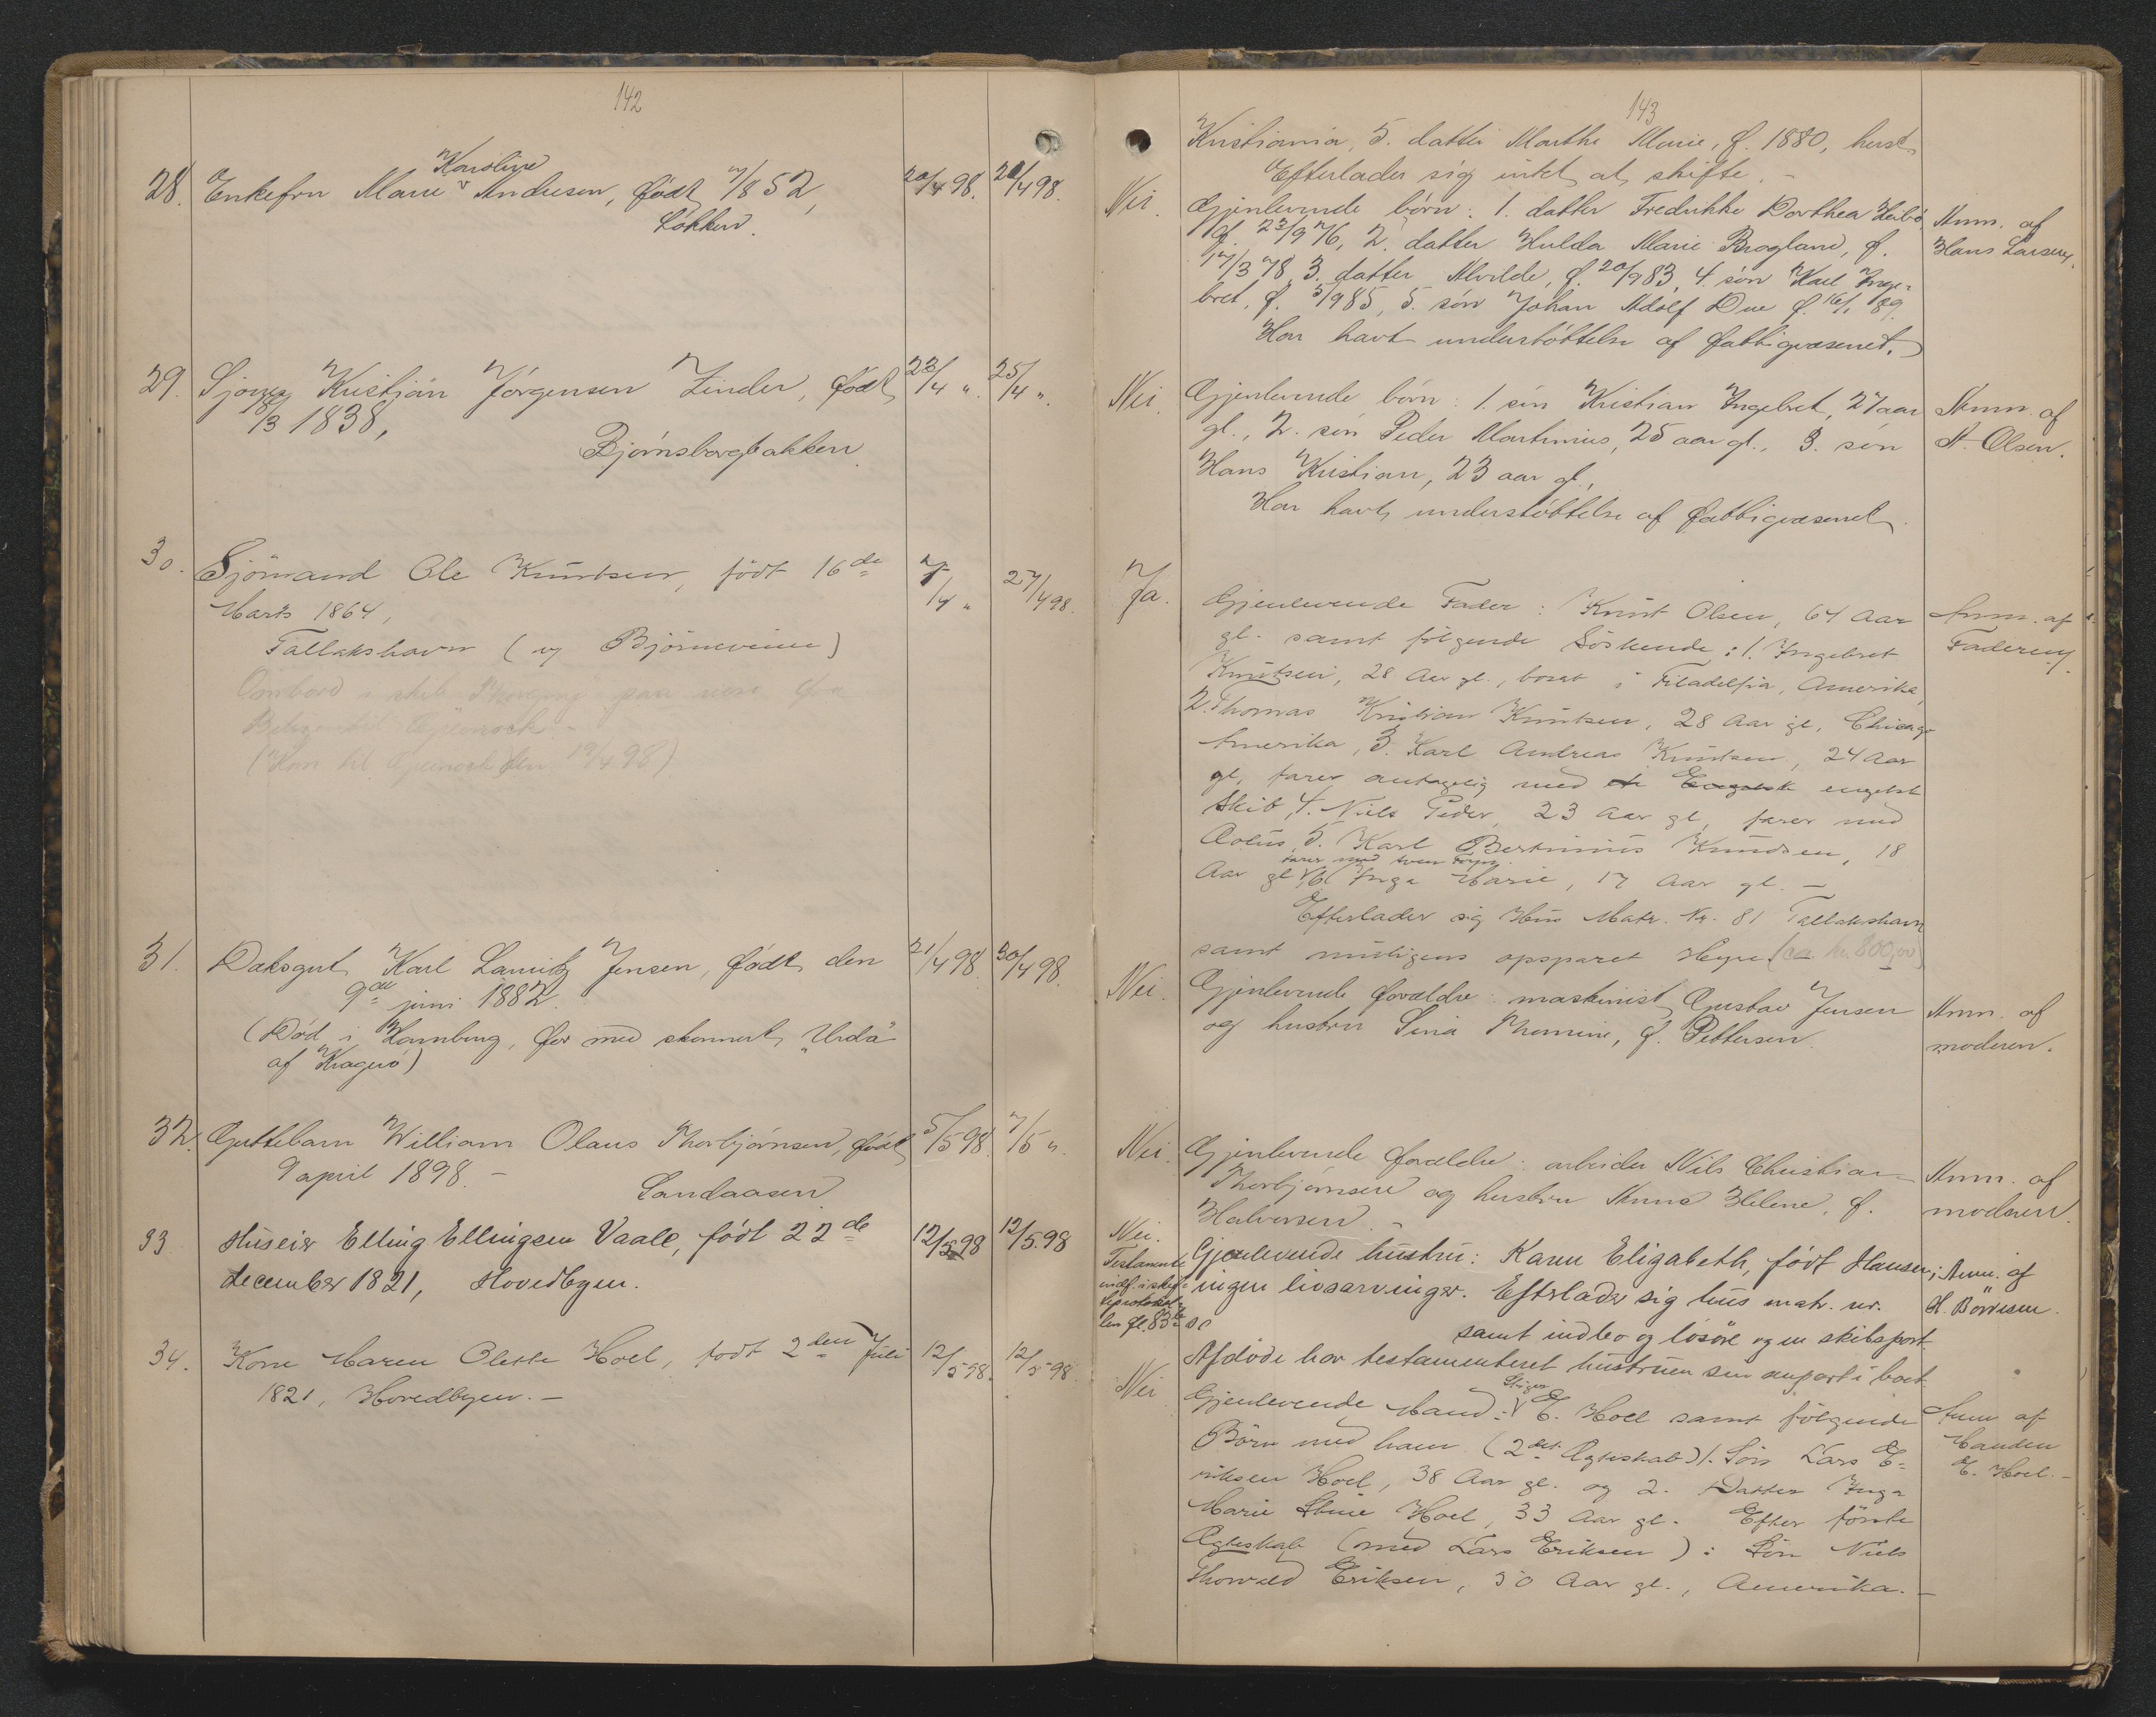 142
28. Enkefru Marie Karoline Andresen, født 7/8 52, 20/4 98. 22/4 98.
Løkken.
29. Kristian Jørgensen Linder, født 23/4 " 25/4 ".
1838,
Bjørnsbergbakken
30. Sjömand Ole Knutsen, födt 16de 7/4 " 27/4 98.
Marts 1864,
Tallakshavn (v/ Björneveien)
Ombord i skib paa reise fra
til Greenock. -
(Kom til Greenock den 19/4 98)
31. Daksgut Karl Lauritz Jensen, født den 21/4 98. 30/4 98.
9de juni 1882.
(Død i Hamburg, for med skonnert "Urda"
af Kragerø)
32. Guttebarn William Olaus Thorbjørnsen, født 5/5 98. 7/5 ".
9 april 1898. -
Sandaasen
33 Huseier Elling Ellingsen Vaale, födt 22de 12/5 98 12/5.98
december 1821, Hovedbyen.
34. Kone Maren Olette Hoel, födt 2den Juli 12/5 98. 12/5 98.
1821, Hovedbyen. -
143
Kristiania, 5. datter Marthe Marie, f. 1880, hvest
Efterlader sig intet at skifte. -
Nei. Gjenlevende børn: 1. datter Fredrikke Dorthea Anm. af
f. 23/9 76, 2. datter Hulda Marie Brogland, f. Hans Larsen.
17/3 78, 3. datter Alvilde, f. 20/9 83, 4. søn Karl Inge-
bret, f. 5/9 85, 5. søn Johan Adolf Due f. 16/1 89.
Har havt understøttelse af fattigvæsenet.
Nei. Gjenlevende børn: 1. søn Kristian Ingebret, 27 aar Anm. af
gl., 2. søn Peder Martinius, 25 aar gl., 3. søn A. Olsen.
Hans Kristian, 23 aar gl.,
Har havt understøttelse af fattigvæsenet.
Ja. Gjenlevende Fader: Knut Olsen, 64 Aar Anm. af
gl. samt fölgende Söskende: 1. Ingebret Faderen.
Knutsen, 28 Aar gl., bosat i Filadelfia, Amerika,
2. Thomas Kristian Knutsen, 28 Aar gl, Chicago
Amerika, 3. Karl Andreas Knutsen, 24 Aar
gl, farer antagelig med et Engelsk engelsk
Skib, 4. Niels Peder, 23 Aar gl, farer med
Æolus, 5. Karl Bertinius Knudsen, 18
farer med
Aar gl 6 Inga Marie, 17 Aar gl. -
Efterlader sig Hus Matr. Nr. 81 Tallakshavn
samt muligens opsparet Hyre (ca kr. 800,00)
Nei. Gjenlevende forældre: maskinist Gustav Jensen Anm. af
og hustru Sina Thomine, f. Pettersen. moderen.
Nei. Gjenlevende forældre: arbeider Nils Christian Anm. af
Thorbjørnsen og hustru Anna Helene, f. moderen.
Halvorsen. -
Nei.
Testamente Gjenlevende hustru: Karen Elizabeth, født Hansen; Anm. af
indf. i skif- ingen livsarvinger. Efterlader sig hus matr. nr. H. Börresen.
teprotokol-
len fl. 83
samt indbo og løsøre og en skibspart.
Afdöde har testamenteret hustruen sin anpart i boet.
Nei Gjenlevende Mand: E. Hoel samt fölgende Anm af
Börn med ham (2det Ægteskab) 1. Sön Lars E- Manden
riksen Hoel, 38 Aar gl. og 2. Datter Inga E. Hoel. -
Marie Hoel, 33 Aar gl. Efter förste
Ægteskab (med Lars Eriksen): Sön Niels
Thorvald Eriksen, 50 Aar gl., Amerika. -